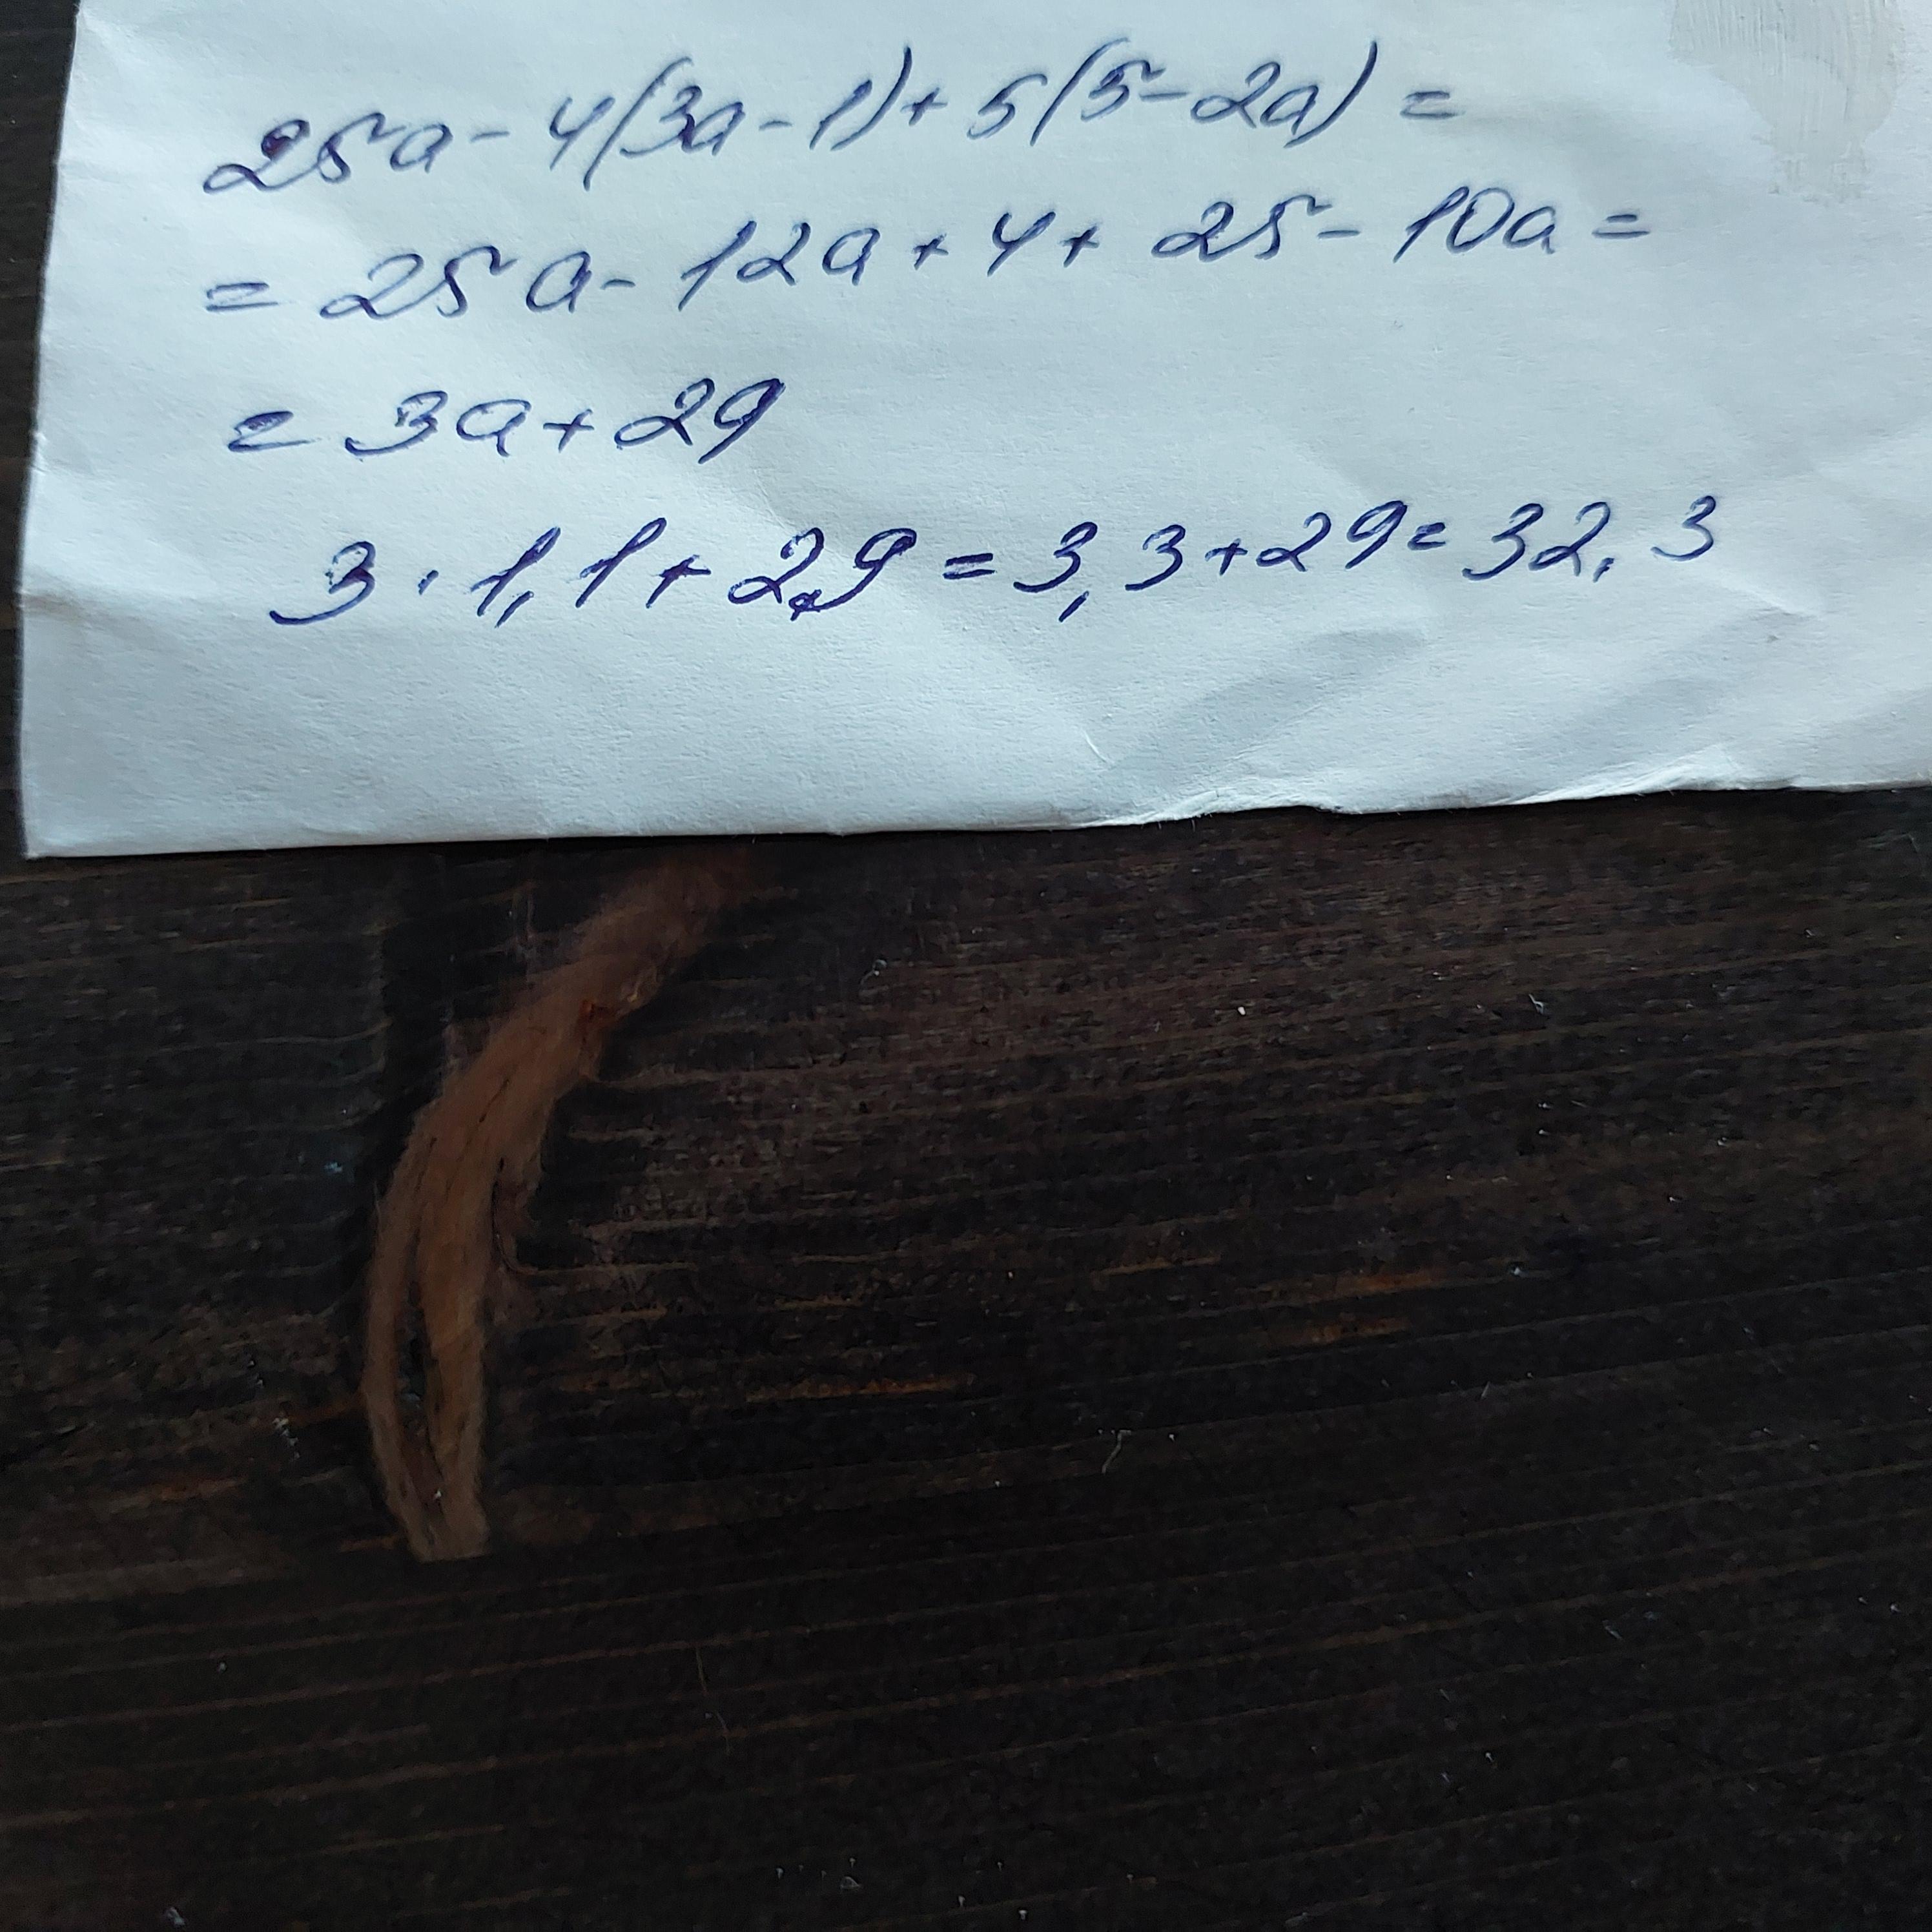 25a - 4(3a - 1) + 5(5 - 2a) =
= 25a - 12a + 4 + 25 - 10a =
= 3a + 29
3 · 1,1 + 29 = 3,3 + 29 = 32,3